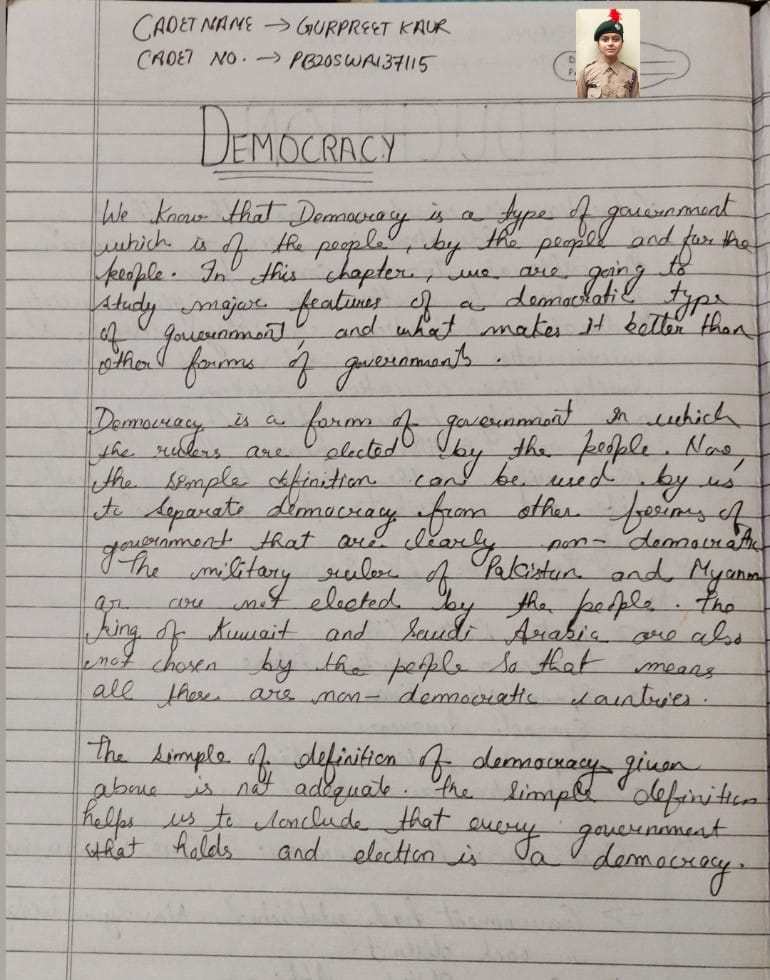 CADET NAME → GURPREET KAUR
CADET NO. → PB20SWA137115
DEMOCRACY
We know that Democracy is a type of government
which is of the people, by the people and for the
people. In this chapter, we are going to
study major features of a democratic type
of government, and what makes it better than
other forms of governments.
Democracy is a form of government in which
the rulers are elected by the people. Now,
the simple definition can be used by us
to separate democracy from other forms of
government that are clearly non-democratic
The military ruler of Pakistan and Myanm
ar are not elected by the people. The
king of Kuwait and Saudi Arabia are also
not chosen by the people so that means
all these are non-democratic countries.
The simple of definition of democracy given
above is not adequate. The simple definition
helps us to conclude that every government
that holds and election is a democracy.